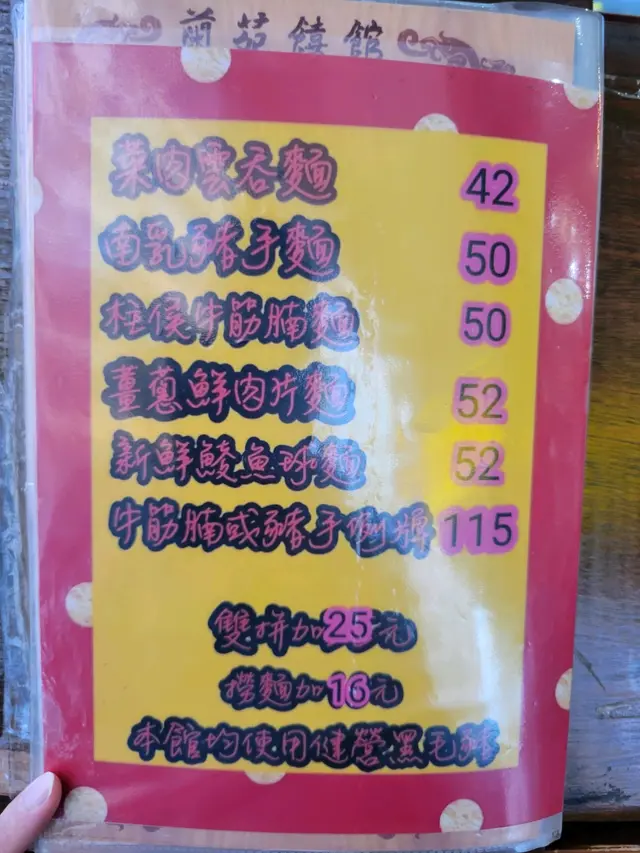 蘭苑饎館
菜肉雲吞麵 42
南乳豬手麵 50
柱侯牛筋腩麵 50
薑蔥鮮肉片麵 52
新鮮鯪魚球麵 52
牛筋腩或豬手例牌 115
雙拼加25元
撈麵加16元
本館均使用健營黑毛豬